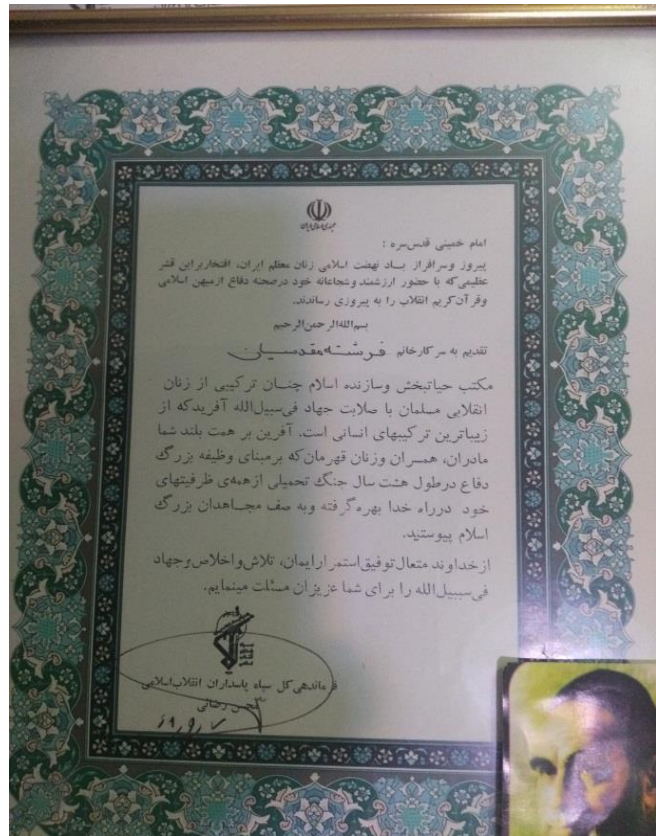 جمهوری اسلامی ایران
امام خمینی قدس‌سره :
پیروز و سرافراز بـاد نهضت اسلامی زنان معظم ایران، افتخار براین قشر
عظیمی‌که با حضور ارزشمند و شجاعانه خود درصحنه دفاع ازمیهن اسلامی
وقرآن‌کریم انقلاب را به پیروزی رساندند.
بسم‌الله‌الرحمن‌الرحیم
تقدیم به سرکارخانم فرشته مقدسیان
مکتب حیاتبخش وسازنده اسلام چنـان ترکیبی از زنان
انقلابی مسلمان با صلابت جهاد فی‌سبیل‌الله آفرید‌که از
زیباترین ترکیبهای انسانی است. آفرین بر همت بلند شما
مادران، همسران وزنان قهرمان‌که برمبنای وظیفه بزرگ
دفاع درطول هشت سال جنگ تحمیلی ازهمه‌ی ظرفیتهای
خود درراه خدا بهره‌گرفته وبه صف مجـاهدان بزرگ
اسلام پیوستید.
ازخداوند متعال توفیق استمرارایمان، تلاش واخلاص وجهاد
فی‌سبیل‌الله را برای شما عزیزان مسئلت مینمایم.
فرماندهی‌کل سپاه پاسداران انقلاب‌اسلامی
محسن رضائی